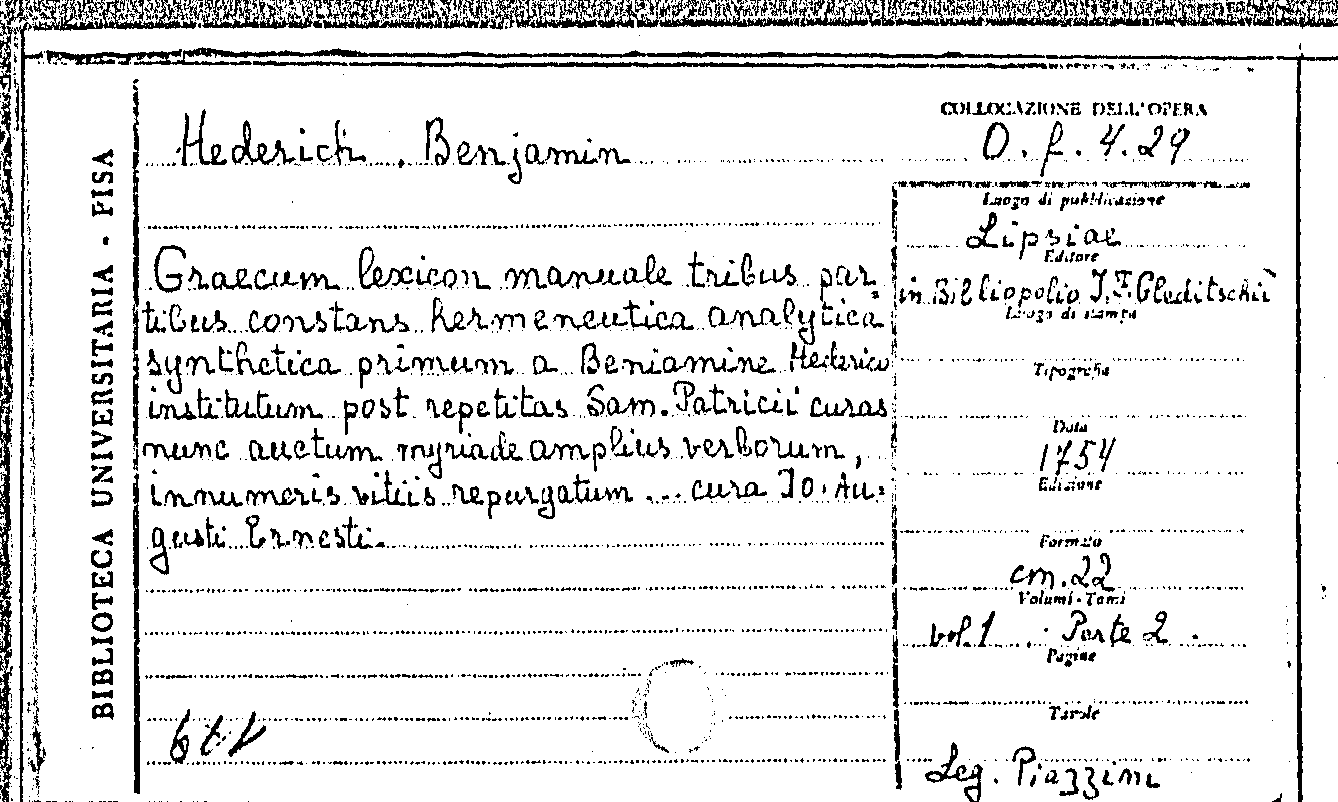 BIBLIOTECA UNIVERSITARIA - PISA
Hederich, Benjamin
Graecum lexicon manuale tribus par=
tibus constans hermeneutica analytica
synthetica primum a Beniamine Hederico
institutum post repetitas Sam. Patricii curas
nunc auctum myriade amplius verborum,
innumeris vitiis repurgatum ... cura Io. Au=
gusti Ernesti.
COLLOCAZIONE DELL'OPERA
O. f. 4.29
Luogo di pubblicazione
Lipsiae
Editore
in Bibliopolio J. F. Gleditschii
Luogo di stampa
Tipografia
Data
1754
Edizione
Formato
cm. 22
Volumi - Tomi
vol. 1 . Parte 2.
Pagine
Tavole
Leg. Piazzini